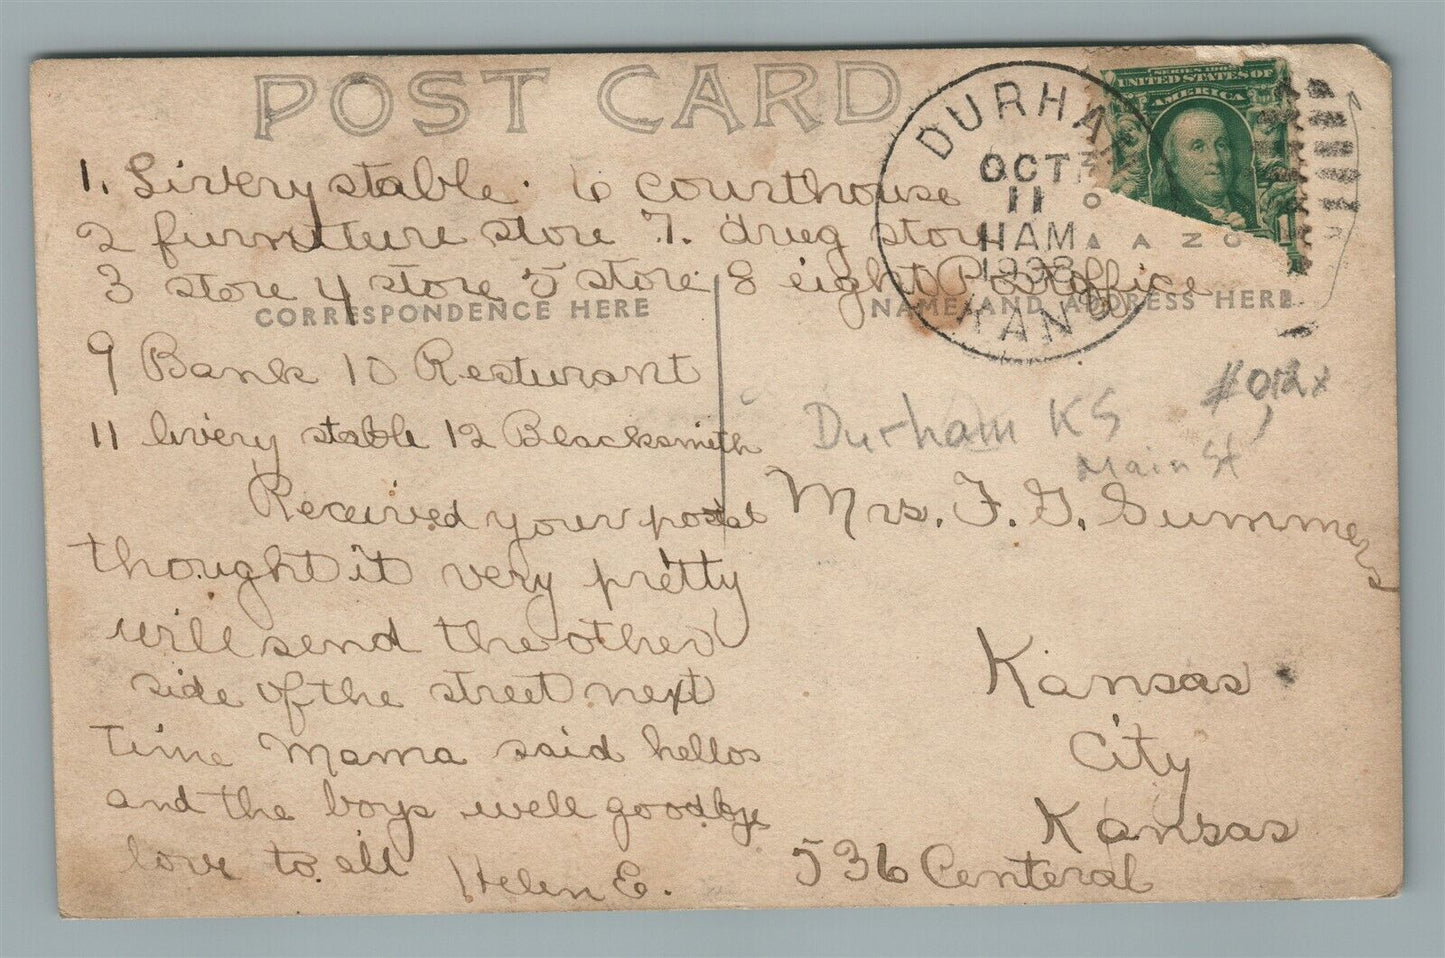 POST CARD
SERIES 1902
UNITED STATES OF
AMERICA
DURHAM
OCT
11
11AM
1908
KANS
1. Livery stable. 6 courthouse
2 furniture store 7. drug store
3 store 4 store 5 store 8 eight Postoffice
CORRESPONDENCE HERE
NAME AND ADDRESS HERE
9 Bank 10 Resturant
11 livery stable 12 Blacksmith
Received your postal
thought it very pretty
will send the other
side of the street next
time Mama said hellos
and the boys well goodbye
love to all Helen E.
Durham KS
Main St
Mrs. F. G. Summers
Kansas
City
Kansas
536 Centeral